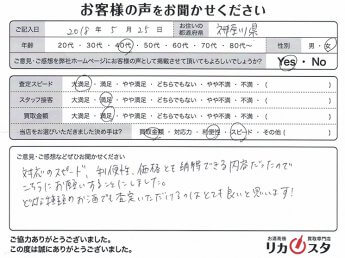 お客様の声をお聞かせください
ご記入日 2018年 5月 25日 お住いの都道府県 神奈川県
年齢 20代・30代・40代・50代・60代・70代・80代～ 性別 男・女
ご意見・ご感想を弊社ホームページにお客様の声として掲載させて頂いてもよろしいでしょうか? Yes・No
査定スピード 大満足・満足・やや満足・どちらでもない・やや不満・不満・( )
スタッフ接客 大満足・満足・やや満足・どちらでもない・やや不満・不満・( )
買取金額 大満足・満足・やや満足・どちらでもない・やや不満・不満・( )
当店をお選びいただきました決め手は? 買取金額・対応力・利便性・スピード・その他( )
ご意見・ご感想などぜひお聞かせください
対応のスピード、利便性、価格とも納得できる内容だったので
こちらにお願いすることにしました。
どんな種類のお酒でも査定いただけるのはとても良いと思います!
ご協力ありがとうございました。
この度は誠にありがとうございました。
お酒高価買取専門店
リカスタ